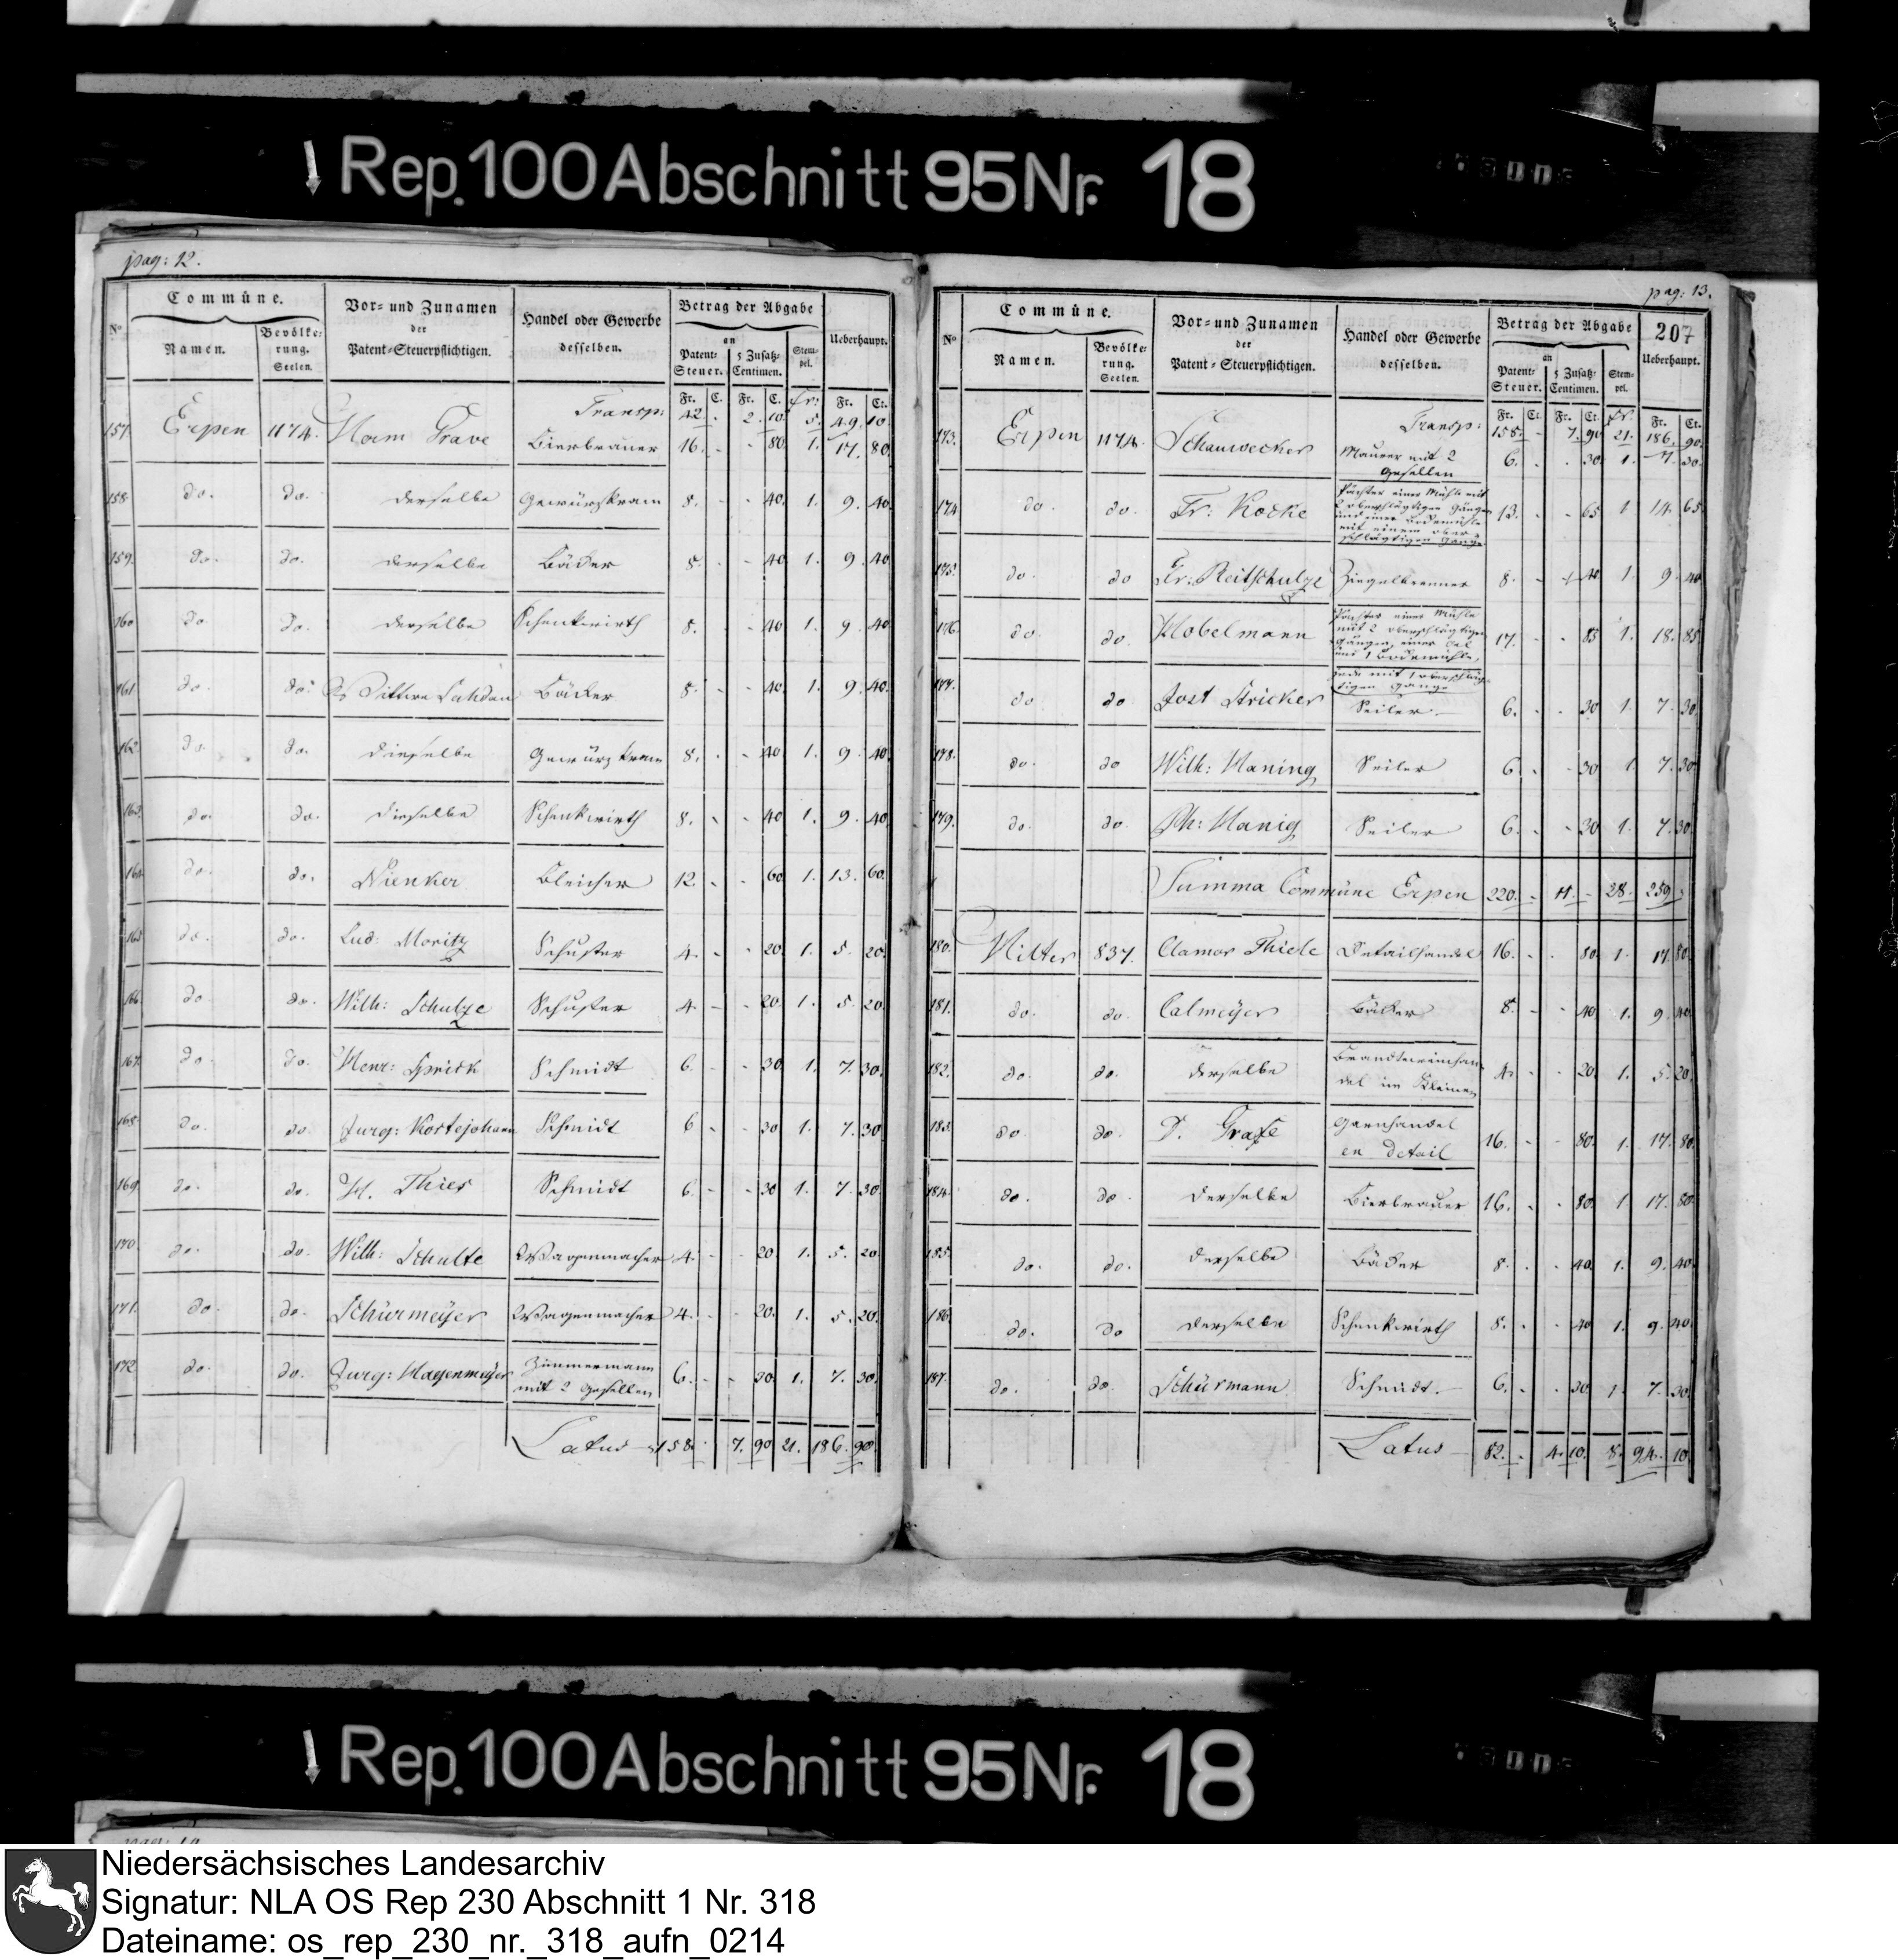 Rep. 100 Abschnitt 95 Nr. 18
pag: 12.
Nº Commüne. Vor- und Zunamen der Patent-Steuerpflichtigen. Handel oder Gewerbe desselben. Betrag der Abgabe Ueberhaupt.
Namen. Bevölkerung. Seelen. an Patent-Steuer. 5 Zusatz-Centimen. Stempel.
Fr. C. Fr. C. Fr: Fr. Ct.
Transp: 42 . 2. 10. 5. 49. 10.
157. Erpen 1174. Ham Grave Bierbrauer 16. - - 80. 1. 17. 80.
158. do. do. derselbe Gewürzkram 8. - - 40. 1. 9. 40.
159. do. do. derselbe Bäcker 8. - - 40. 1. 9. 40.
160 do do. derselbe Schenkwirth 8. - - 40. 1. 9. 40
161 do. do. Wittwe Bäcker 8. - - 40. 1. 9. 40.
162. do. do. dieselbe Gewürzkram 8. - - 40. 1. 9. 40.
163. do. do. dieselbe Schenkwirth 8. - - 40 1. 9. 40.
164. do. do. Nienker Bleicher 12. - - 60. 1. 13. 60.
165 do. do. Lud: Moritz Schuster 4. - - 20. 1. 5. 20.
166. do do. Wilh: Schulze Schuster 4. - - 20. 1. 5. 20.
167. do. do. Henr: Sprick Schmidt 6. - - 30. 1. 7. 30.
168. do. do. Jurg: Kortejohann Schmidt 6 - - 30 1. 7. 30.
169. do. do. H. Thies Schmidt 6. - - 30 1. 7. 30.
170. do. do. Wilh: Schulte Wagenmacher 4. - - 20. 1. 5. 20.
171. do. do. Schürmeÿer Wagenmacher 4. - - 20. 1. 5. 20.
172 do. do. Jurg: Hagenmeÿer Zimmermann
mit 2 Gesellen 6. - - 30. 1. 7. 30.
Latus - 158. . 7. 90 21. 186. 90.
pag: 13.
207
Nº Commüne. Vor- und Zunamen der Patent-Steuerpflichtigen. Handel oder Gewerbe desselben. Betrag der Abgabe Ueberhaupt.
Namen. Bevölkerung. Seelen. an Patent-Steuer. 5 Zusatz-Centimen. Stempel.
Fr. Ct. Fr. Ct. Fr. Fr. Ct.
Transp: 158. - 7. 90 21. 186. 90.
173. Erpen 1174. Schauwecker Maurer mit 2
Gesellen 6. - . 30. 1. 7. 30.
174 do. do. Fr: Kocke Pächter einer Mühle mit
2 oberschlägtigen Gängen
und einer Bockemühle
mit einem ober-
schlägtigen Gange 13. - - 65 1 14. 65.
175. do. do Fr: Reitschulze Ziegelbrenner 8. - - 40. 1. 9. 40
176. do. do. Hobelmann Pächter einer Mühle
mit 2 oberschlägtigen
Gängen, einer Oel
und 1 Bockemühle,
jede mit 1 oberschläg-
tigen Gange 17. - - 85 1. 18. 85
177. do. do Jost Stricker Seiler - 6. - - 30 1. 7. 30
178. do. do Wilh: Haning Seiler 6. - - 30 1 7. 30
179. do. do Ph: Hanig Seiler 6. - - 30 1. 7. 30.
Summa Commüne Erpen 220. - 11. - 28. 259.
180. Hilter 837. Clamor Thiele Detailhandel 16. - . 80. 1. 17. 80.
181. do. do. Calmeÿer Bäcker 8. - - 40 1. 9. 40.
182. do. do. derselbe Brandteweinhan-
del im Kleinen 4. - - 20. 1. 5. 20.
183. do. do. D. Grafe Garnhandel
en Detail 16. - - 80. 1. 17. 80
184. do. do. derselbe Bierbrauer 16. - . 80. 1 17. 80
185. do. do. derselbe Bäcker 8. . . 40. 1. 9. 40.
186 do. do derselbe Schenkwirth 8. . . 40 1. 9. 40.
187. do. do. Schürmann Schmidt. - 6. . . 30 1. 7. 30.
Latus - 82. - 4. 10. 8. 94. 10
Rep. 100 Abschnitt 95 Nr. 18
Niedersächsisches Landesarchiv
Signatur: NLA OS Rep 230 Abschnitt 1 Nr. 318
Dateiname: os_rep_230_nr._318_aufn_0214